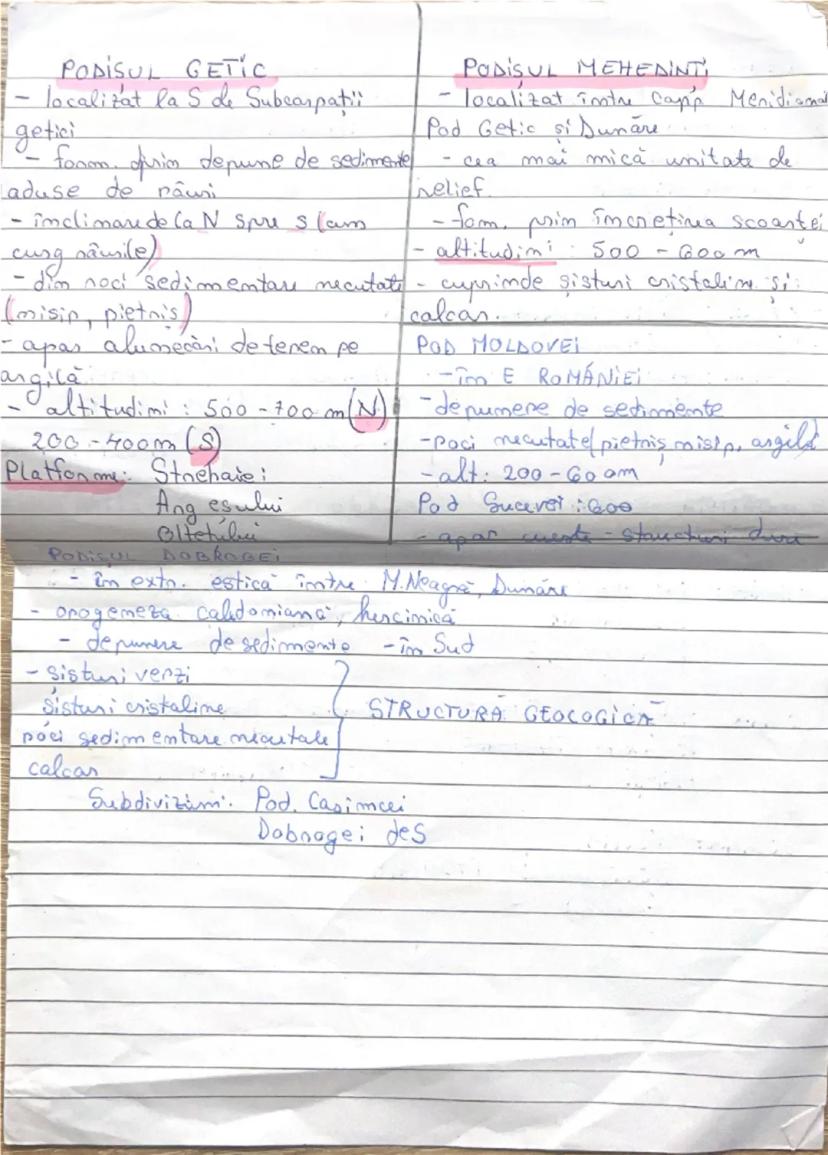 PODIȘUL GETIC
- localizat la S de Subcarpații
getici
- form. prin depune de sedimente
aduse de râuri
- înclinare de la N spre S (cum
curg râurile)
- din roci sedimentare necutate
(nisip, pietriș)
- apar alunecări de teren pe
argilă
- altitudini : 500 - 700 m (N)
200 - 400 m (S)
Platforme: Strehaiei
Argeșului
Oltețului
PODIȘUL MEHEDINȚI
- localizat între Carp Meridional
Pod Getic și Dunăre
- cea mai mică unitate de
relief.
- form. prin încrețirea scoarței
- altitudini : 500 - 600 m
- cuprinde șisturi cristaline și
calcar.
POD MOLDOVEI
- în E ROMÂNIEI
- depunere de sedimente
- roci necutate (pietriș, nisip, argilă)
- alt: 200 - 600m
Pod Sucevei : 600
- apar cueste - structuri dure
PODIȘUL DOBROGEI
- în extr. estică între M. Neagră, Dunăre
- orogeneza caledoniană, hercinică
- depunere de sedimente - în Sud
- șisturi verzi
șisturi cristaline
roci sedimentare necutate
calcar
STRUCTURĂ GEOLOGICĂ
Subdiviziuni. Pod. Casimcei
Dobrogei de S